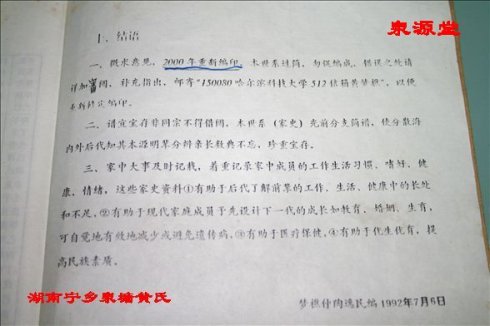 泉源堂
十、结语
一、征求意见，2000年重新编印。本世系过简，匆促编成，错误之处请
详加审阅，补充指出，邮寄"150080哈尔滨科技大学512信箱黄梦祺"，以便
重新修定编印。
二、请宜宝存非同宗不得借阅。本世系（家史）先前分支简谱，使分散海
内外后代知其本源明辈分辨亲长经典不忘，珍重宝存。
三、家中大事及时记载，着重记录家中成员的工作生活习惯、嗜好、健
康、情绪，这些家史资料①有助于后代了解前辈的工作、生活、健康中的长处
和不足，②有助于现代家庭成员予先设计下一代的成长如教育、婚姻、生育，
可自觉地有效地减少或避免遗传病，③有助于医疗保健，④有助于优生优育，提
高民族素质。
湖南宁乡泉塘黄氏
梦祺仲陶逸民编 1992年7月6日